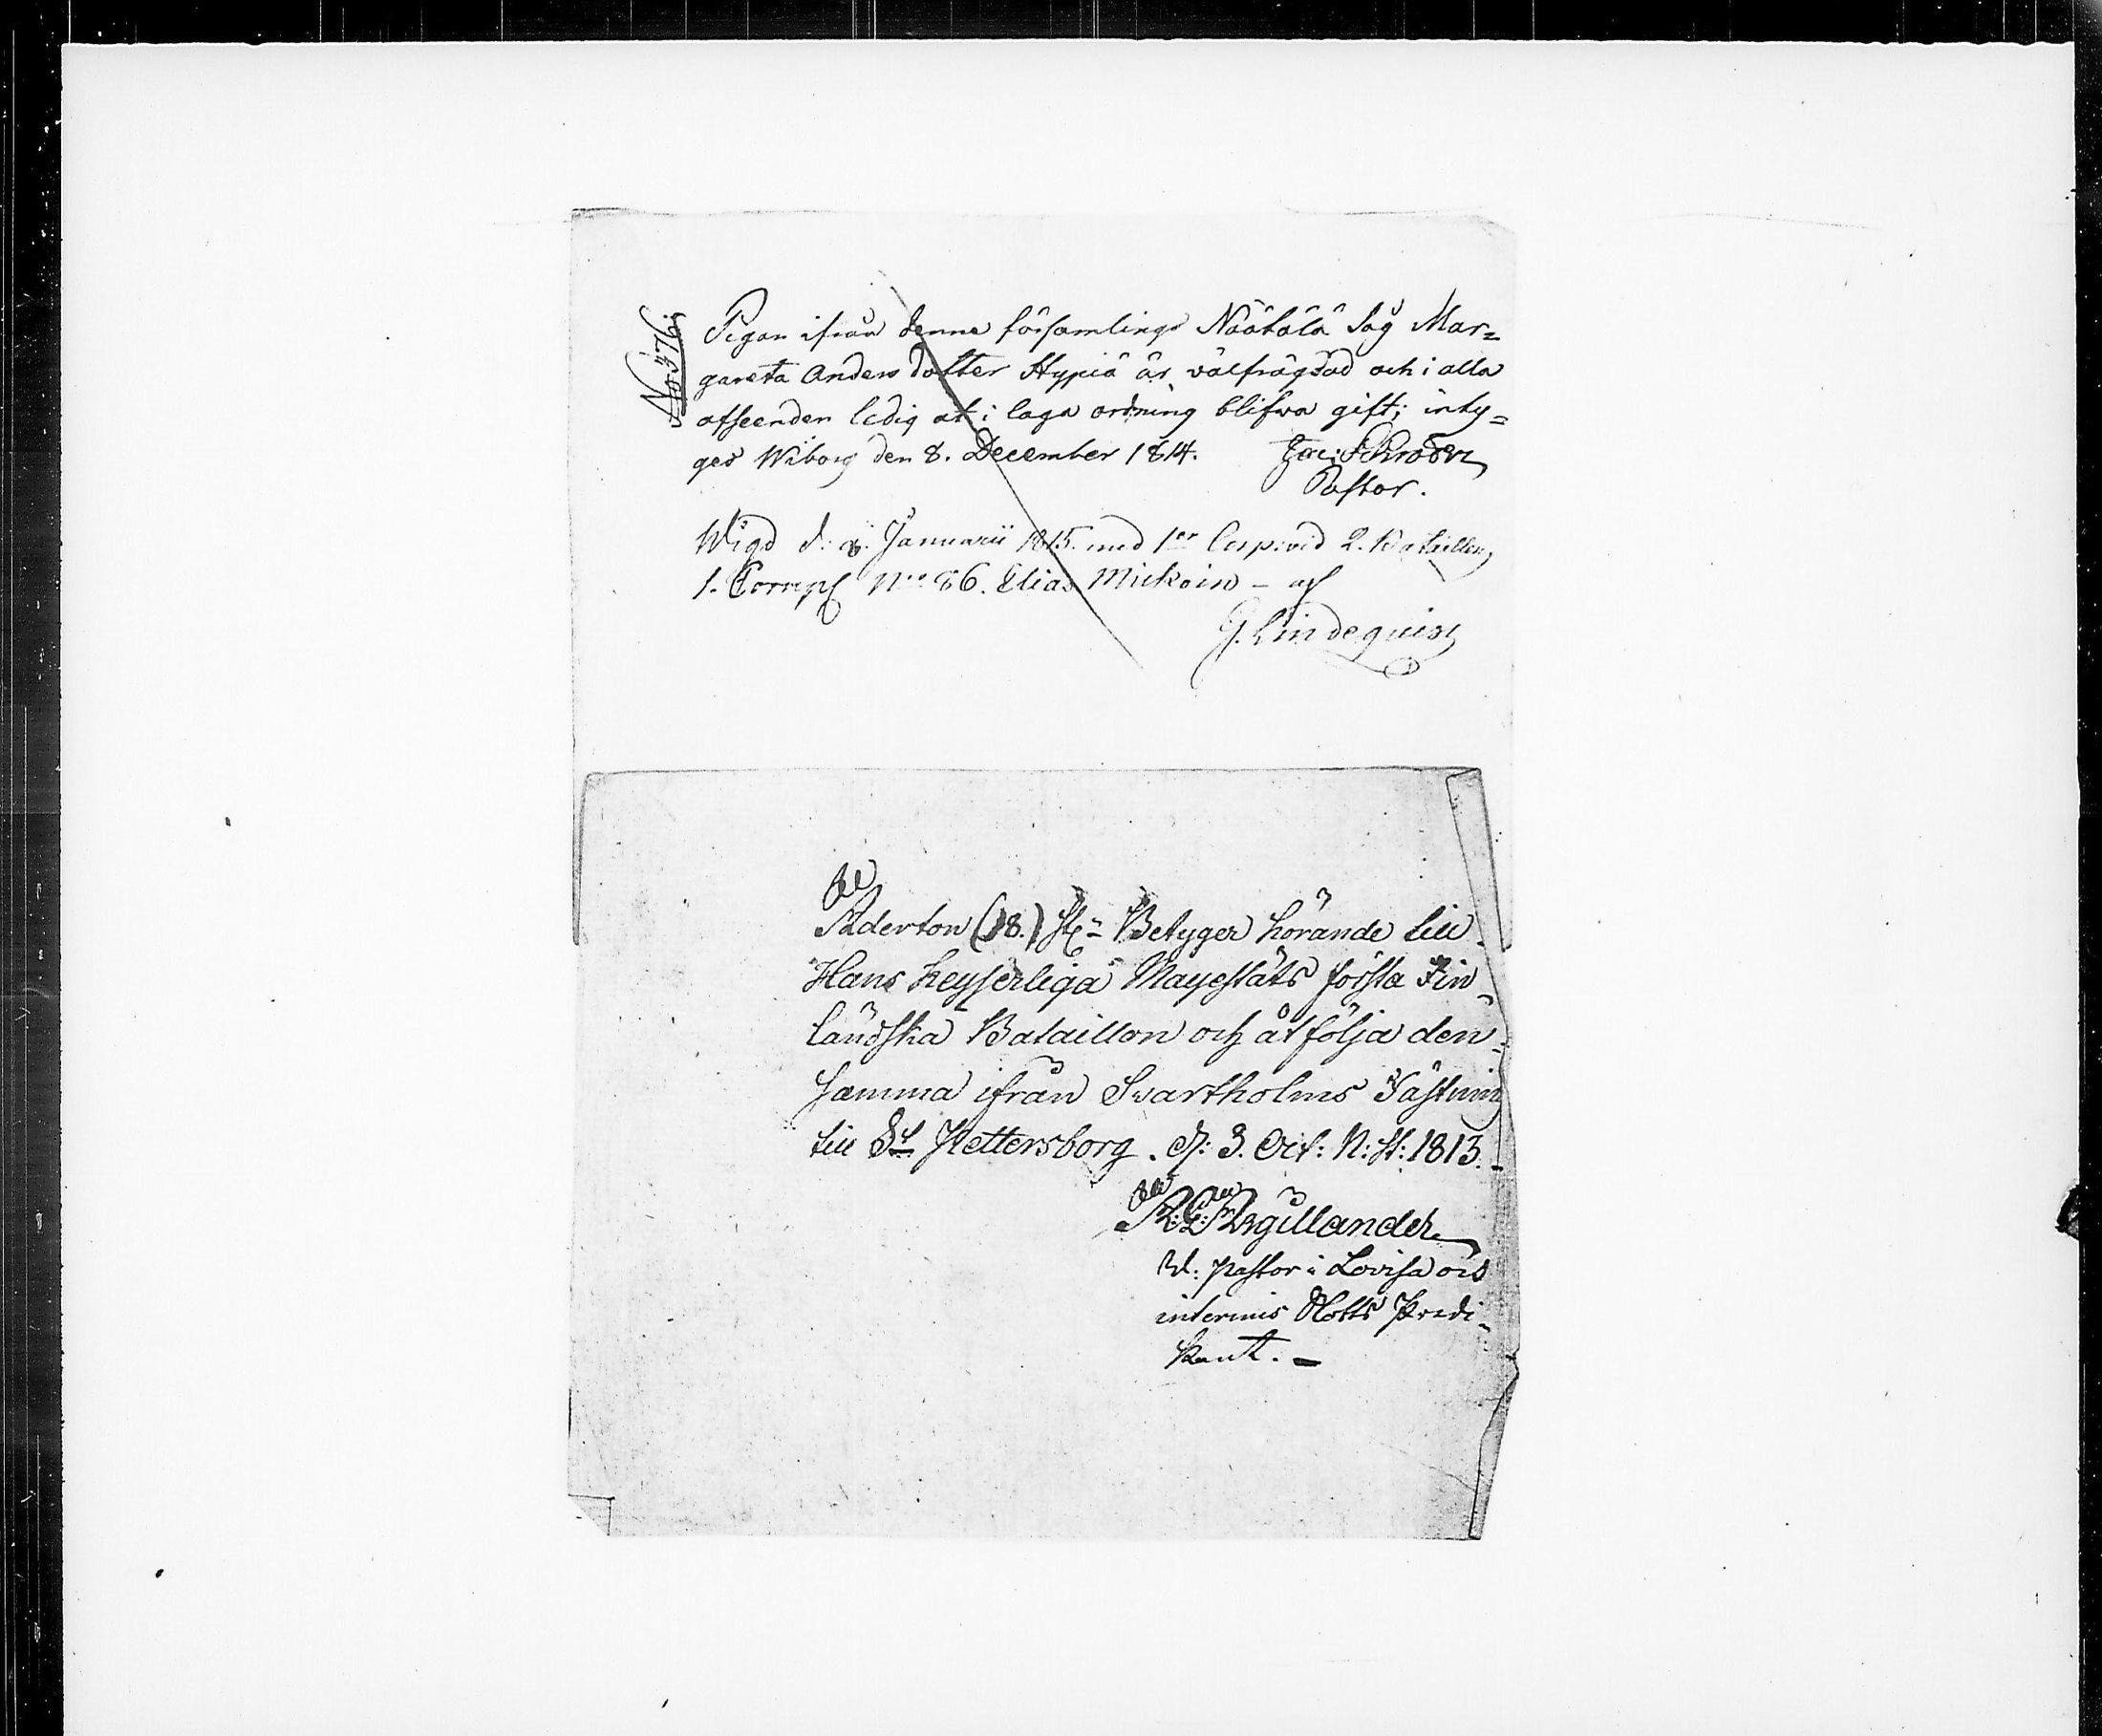 No 576.
Pigan ifrån denne församlings Näätälä Såg Mar=
gareta Anders dotter Hypiä är välfrägdad och i alla
afseenden ledig at i laga ordning blifwa gift; inty=
gas Wiborg den 8. December 1814. Jac: Schröder
Pastor.
Wigd d: 8. Januarii 1815. med 1er Corp: vid 2. Bataillon,
1. Comp: No 86. Elias Mickoin – af
G. Lindequist
Aderton (18.) st: Betyger hörande till
Hans Keyserliga Mayestäts första Fin=
ländska Bataillon och åtfölja den=
samma ifrån Svartholms Fästning
till St Pettersborg. d: 3. Oct: N: St: 1813. –
A: G: Argillander
V: Pastor i Lovisa och
interims Slotts Predi=
kant. –